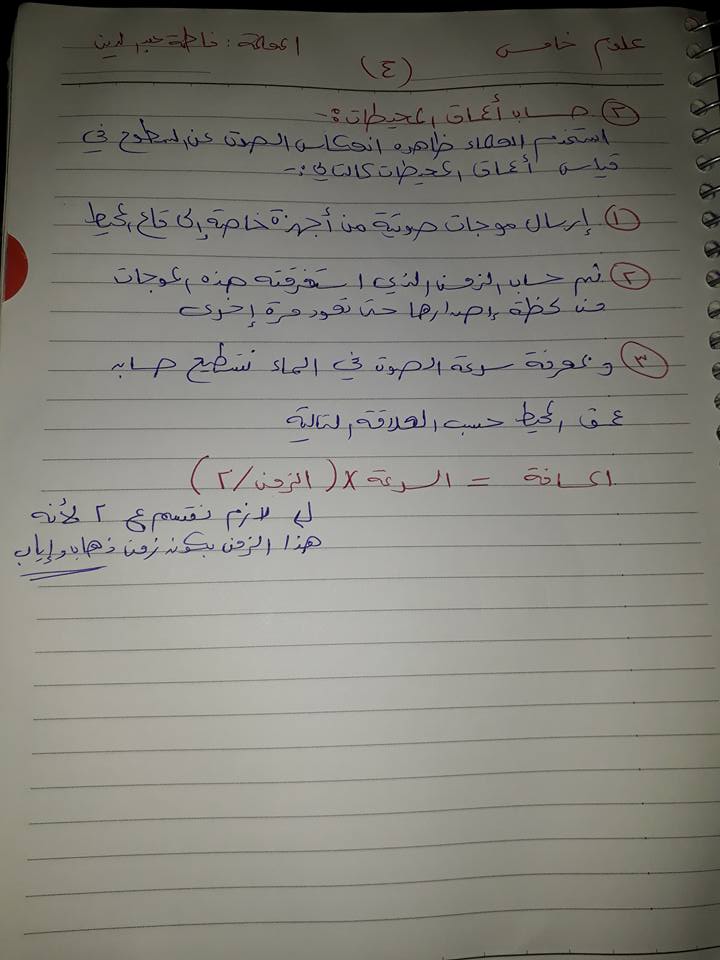 علوم خامس المعلمة: فاطمة حب الدين
(٤)
٢ حساب أعماق المحيطات:-
استخدم العلماء ظاهرة انعكاس الصوت عن السطوح في
قياس أعماق المحيطات كالتالي:-
١ إرسال موجات صوتية من أجهزة خاصة إلى قاع المحيط
٢ ثم حساب الزمن الذي استغرقته هذه الموجات
من لحظة إصدارها حتى تعود مرة إخرى
٣ وبمعرفة سرعة الصوت في الماء نستطيع حساب
عمق المحيط حسب العلاقة التالية
المسافة = السرعة × (الزمن/٢)
لازم نقسم ع ٢ لأنه
هذا الزمن بكون زمن ذهاب وإياب